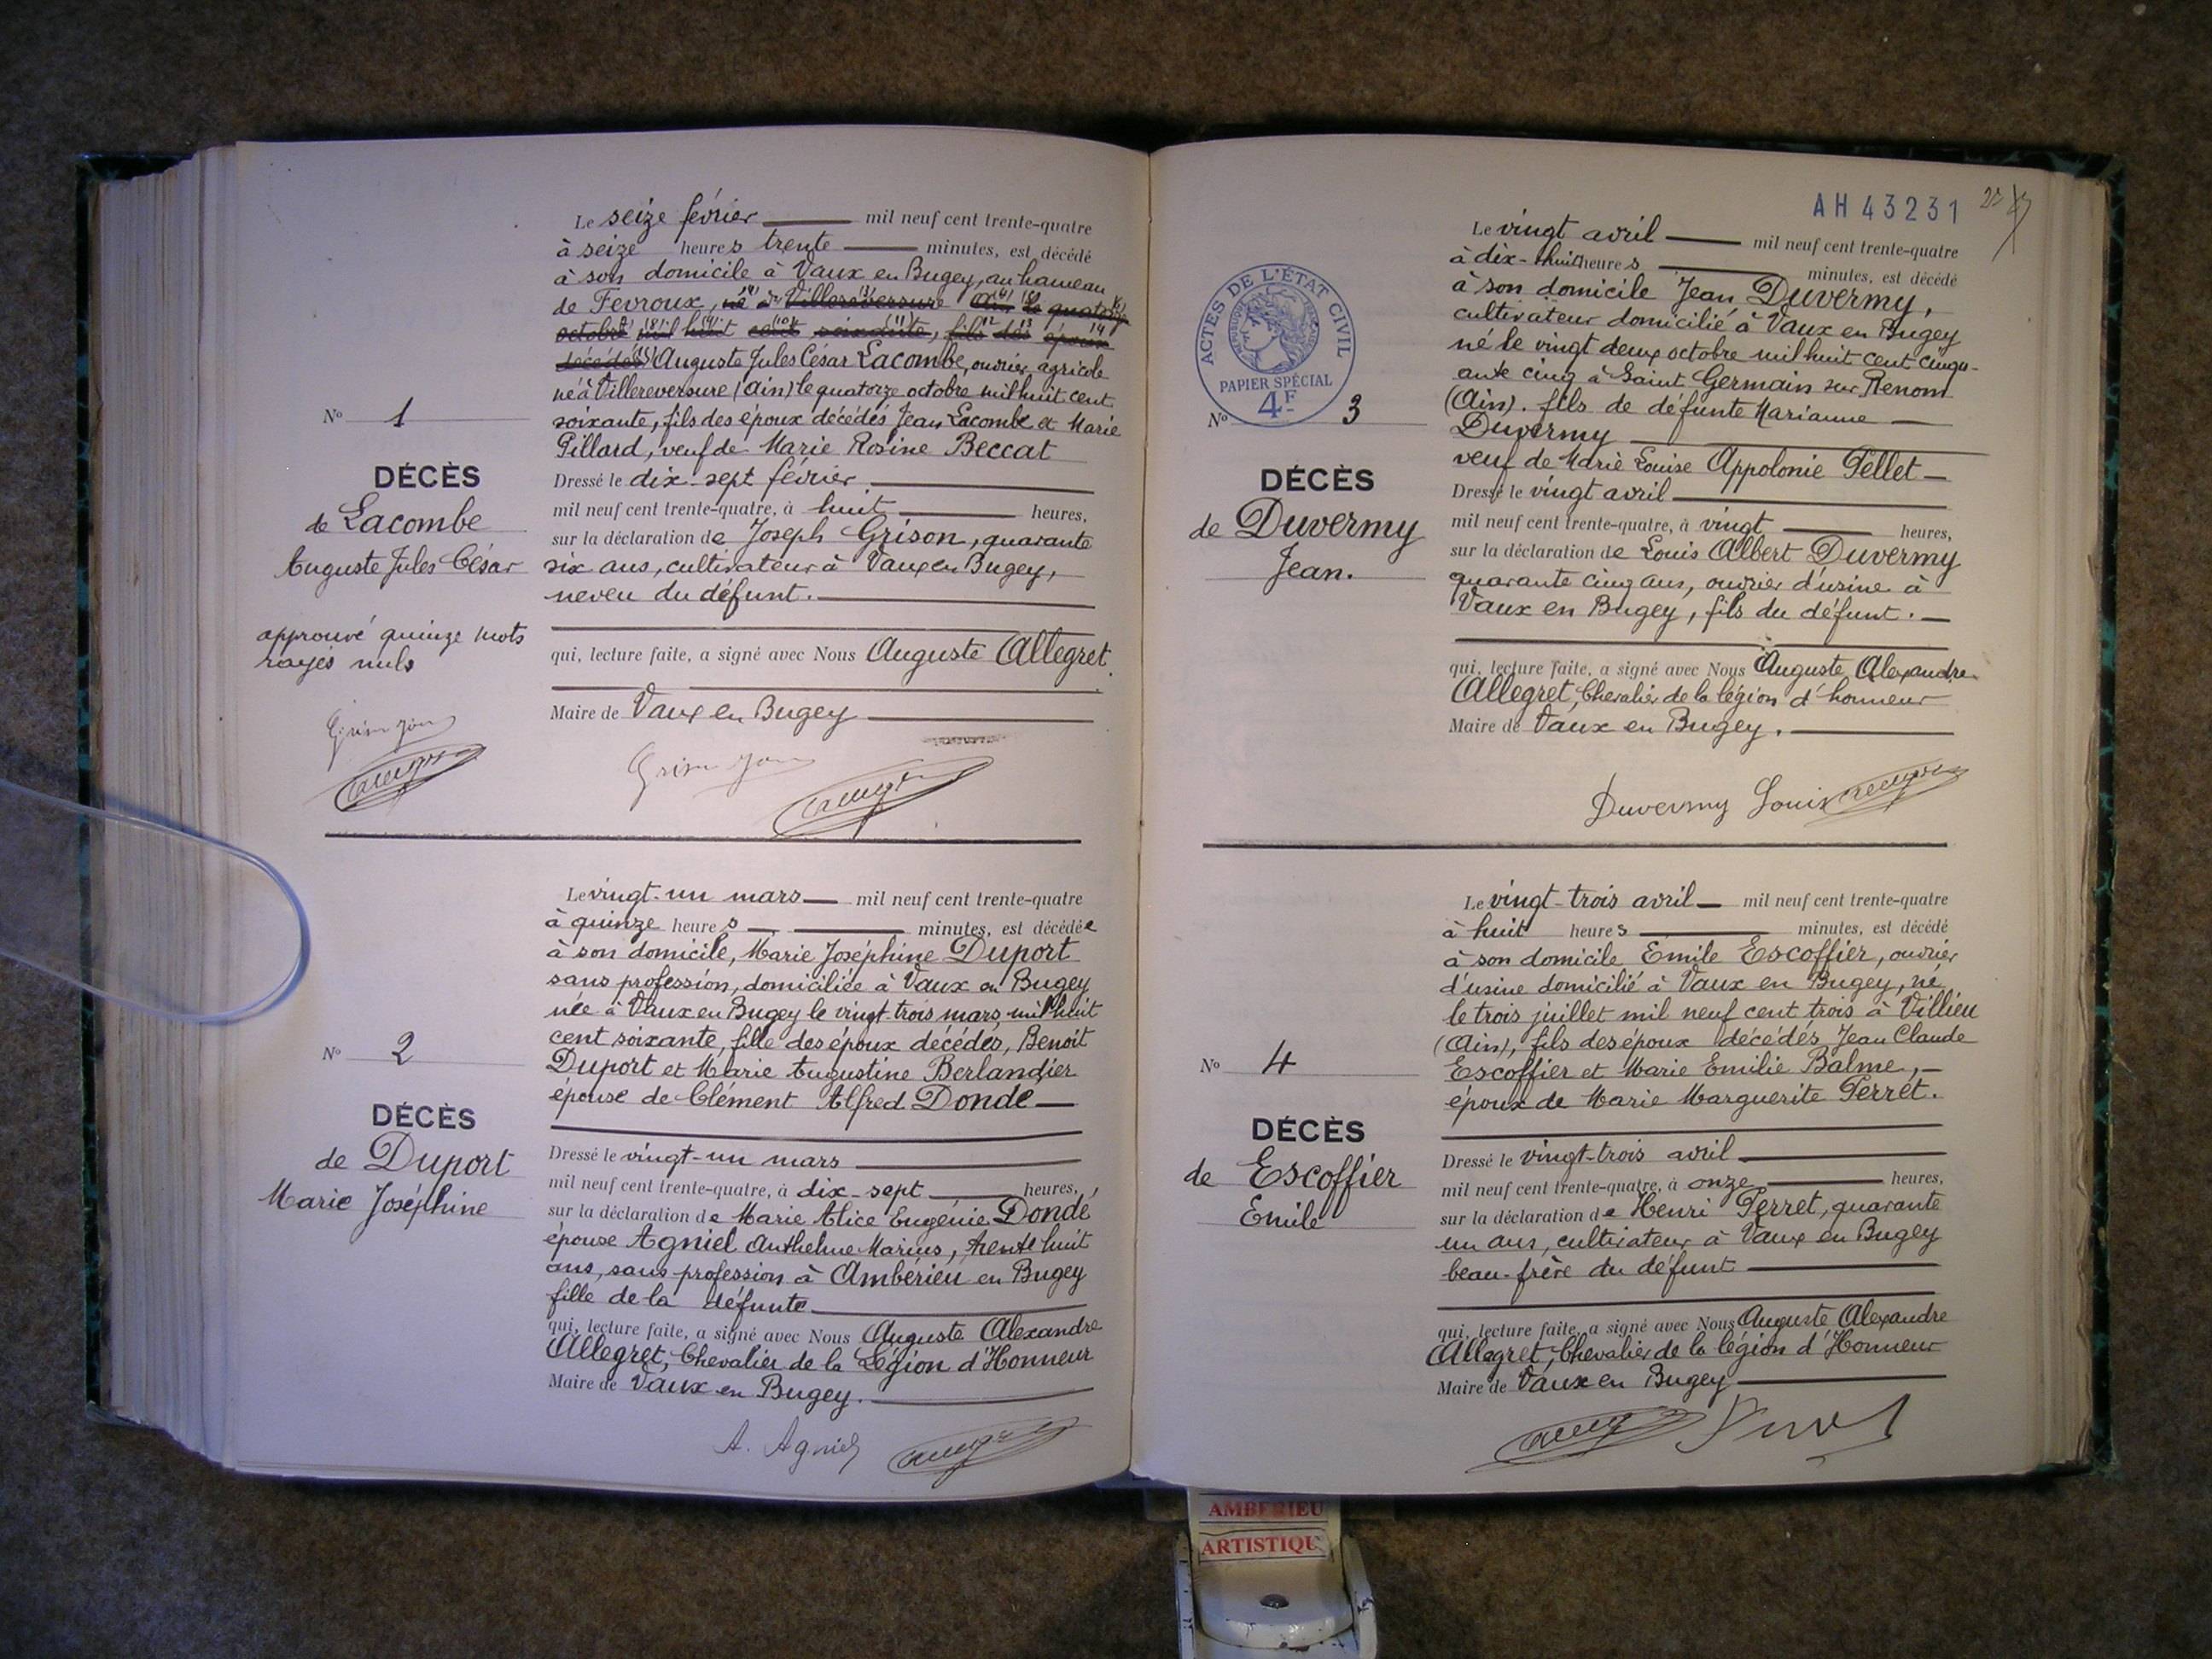 Le seize février mil neuf cent trente-quatre
à seize heures trente minutes, est décédé
à son domicile à Vaux en Bugey, au hameau
de Fevroux, né à Villereversure Ain le quatorze
octobre mil huit cent soixante, fils des époux
décédés Auguste Jules César Lacombe, ouvrier agricole
né à Villereversure (Ain) le quatorze octobre mil huit cent
soixante, fils des époux décédés Jean Lacombe et Marie
Pillard, veuf de Marie Rosine Beccat
Dressé le dix-sept février
mil neuf cent trente-quatre, à huit heures,
sur la déclaration de Joseph Grison, quarante
six ans, cultivateur à Vaux en Bugey,
neveu du défunt.
qui, lecture faite, a signé avec Nous Auguste Allegret.
Maire de Vaux en Bugey
No 1
DÉCÈS
de Lacombe
Auguste Jules César
approuvé quinze mots
rayés nuls
Le vingt-un mars mil neuf cent trente-quatre
à quinze heures minutes, est décédée
à son domicile, Marie Joséphine Duport
sans profession, domiciliée à Vaux en Bugey
née à Vaux en Bugey le vingt-trois mars mil huit
cent soixante, fille des époux décédés, Benoit
Duport et Marie Augustine Berlandier
épouse de Clément Alfred Donde
Dressé le vingt-un mars
mil neuf cent trente-quatre, à dix-sept heures,
sur la déclaration de Marie Alice Eugénie Dondé
épouse Agniel Anthelme Marius, trente huit
ans, sans profession à Ambérieu en Bugey
fille de la défunte
qui, lecture faite, a signé avec Nous Auguste Alexandre
Allegret, Chevalier de la Légion d'Honneur
Maire de Vaux en Bugey.
A. Agniel
No 2
DÉCÈS
de Duport
Marie Joséphine
AH 43231
Le vingt avril mil neuf cent trente-quatre
à dix-huit heures minutes, est décédé
à son domicile Jean Duvermy,
cultivateur domicilié à Vaux en Bugey
né le vingt deux octobre mil huit cent cinqu-
ante cinq à Saint Germain sur Renom
(Ain). fils de défunte Marianne
Duvermy
veuf de Marie Louise Appolonie Pellet
Dressé le vingt avril
mil neuf cent trente-quatre, à vingt heures,
sur la déclaration de Louis Albert Duvermy
quarante cinq ans, ouvrier d'usine à
Vaux en Bugey, fils du défunt.
qui, lecture faite, a signé avec Nous Auguste Alexandre
Allegret, Chevalier de la légion d'honneur
Maire de Vaux en Bugey.
Duvermy Louis
ACTES DE L'ÉTAT CIVIL
PAPIER SPÉCIAL
4F
No 3
DÉCÈS
de Duvermy
Jean.
Le vingt-trois avril mil neuf cent trente-quatre
à huit heures minutes, est décédé
à son domicile Emile Escoffier, ouvrier
d'usine domicilié à Vaux en Bugey, né
le trois juillet mil neuf cent trois à Villieu
(Ain), fils des époux décédés Jean Claude
Escoffier et Marie Emilie Balme,
époux de Marie Marguerite Perret.
Dressé le vingt-trois avril
mil neuf cent trente-quatre, à onze heures,
sur la déclaration de Henri Perret, quarante
un ans, cultivateur à Vaux en Bugey
beau-frère du défunt
qui, lecture faite, a signé avec Nous Auguste Alexandre
Allegret, Chevalier de la légion d'Honneur
Maire de Vaux en Bugey
No 4
DÉCÈS
de Escoffier
Emile
AMBERIEU
ARTISTIQU